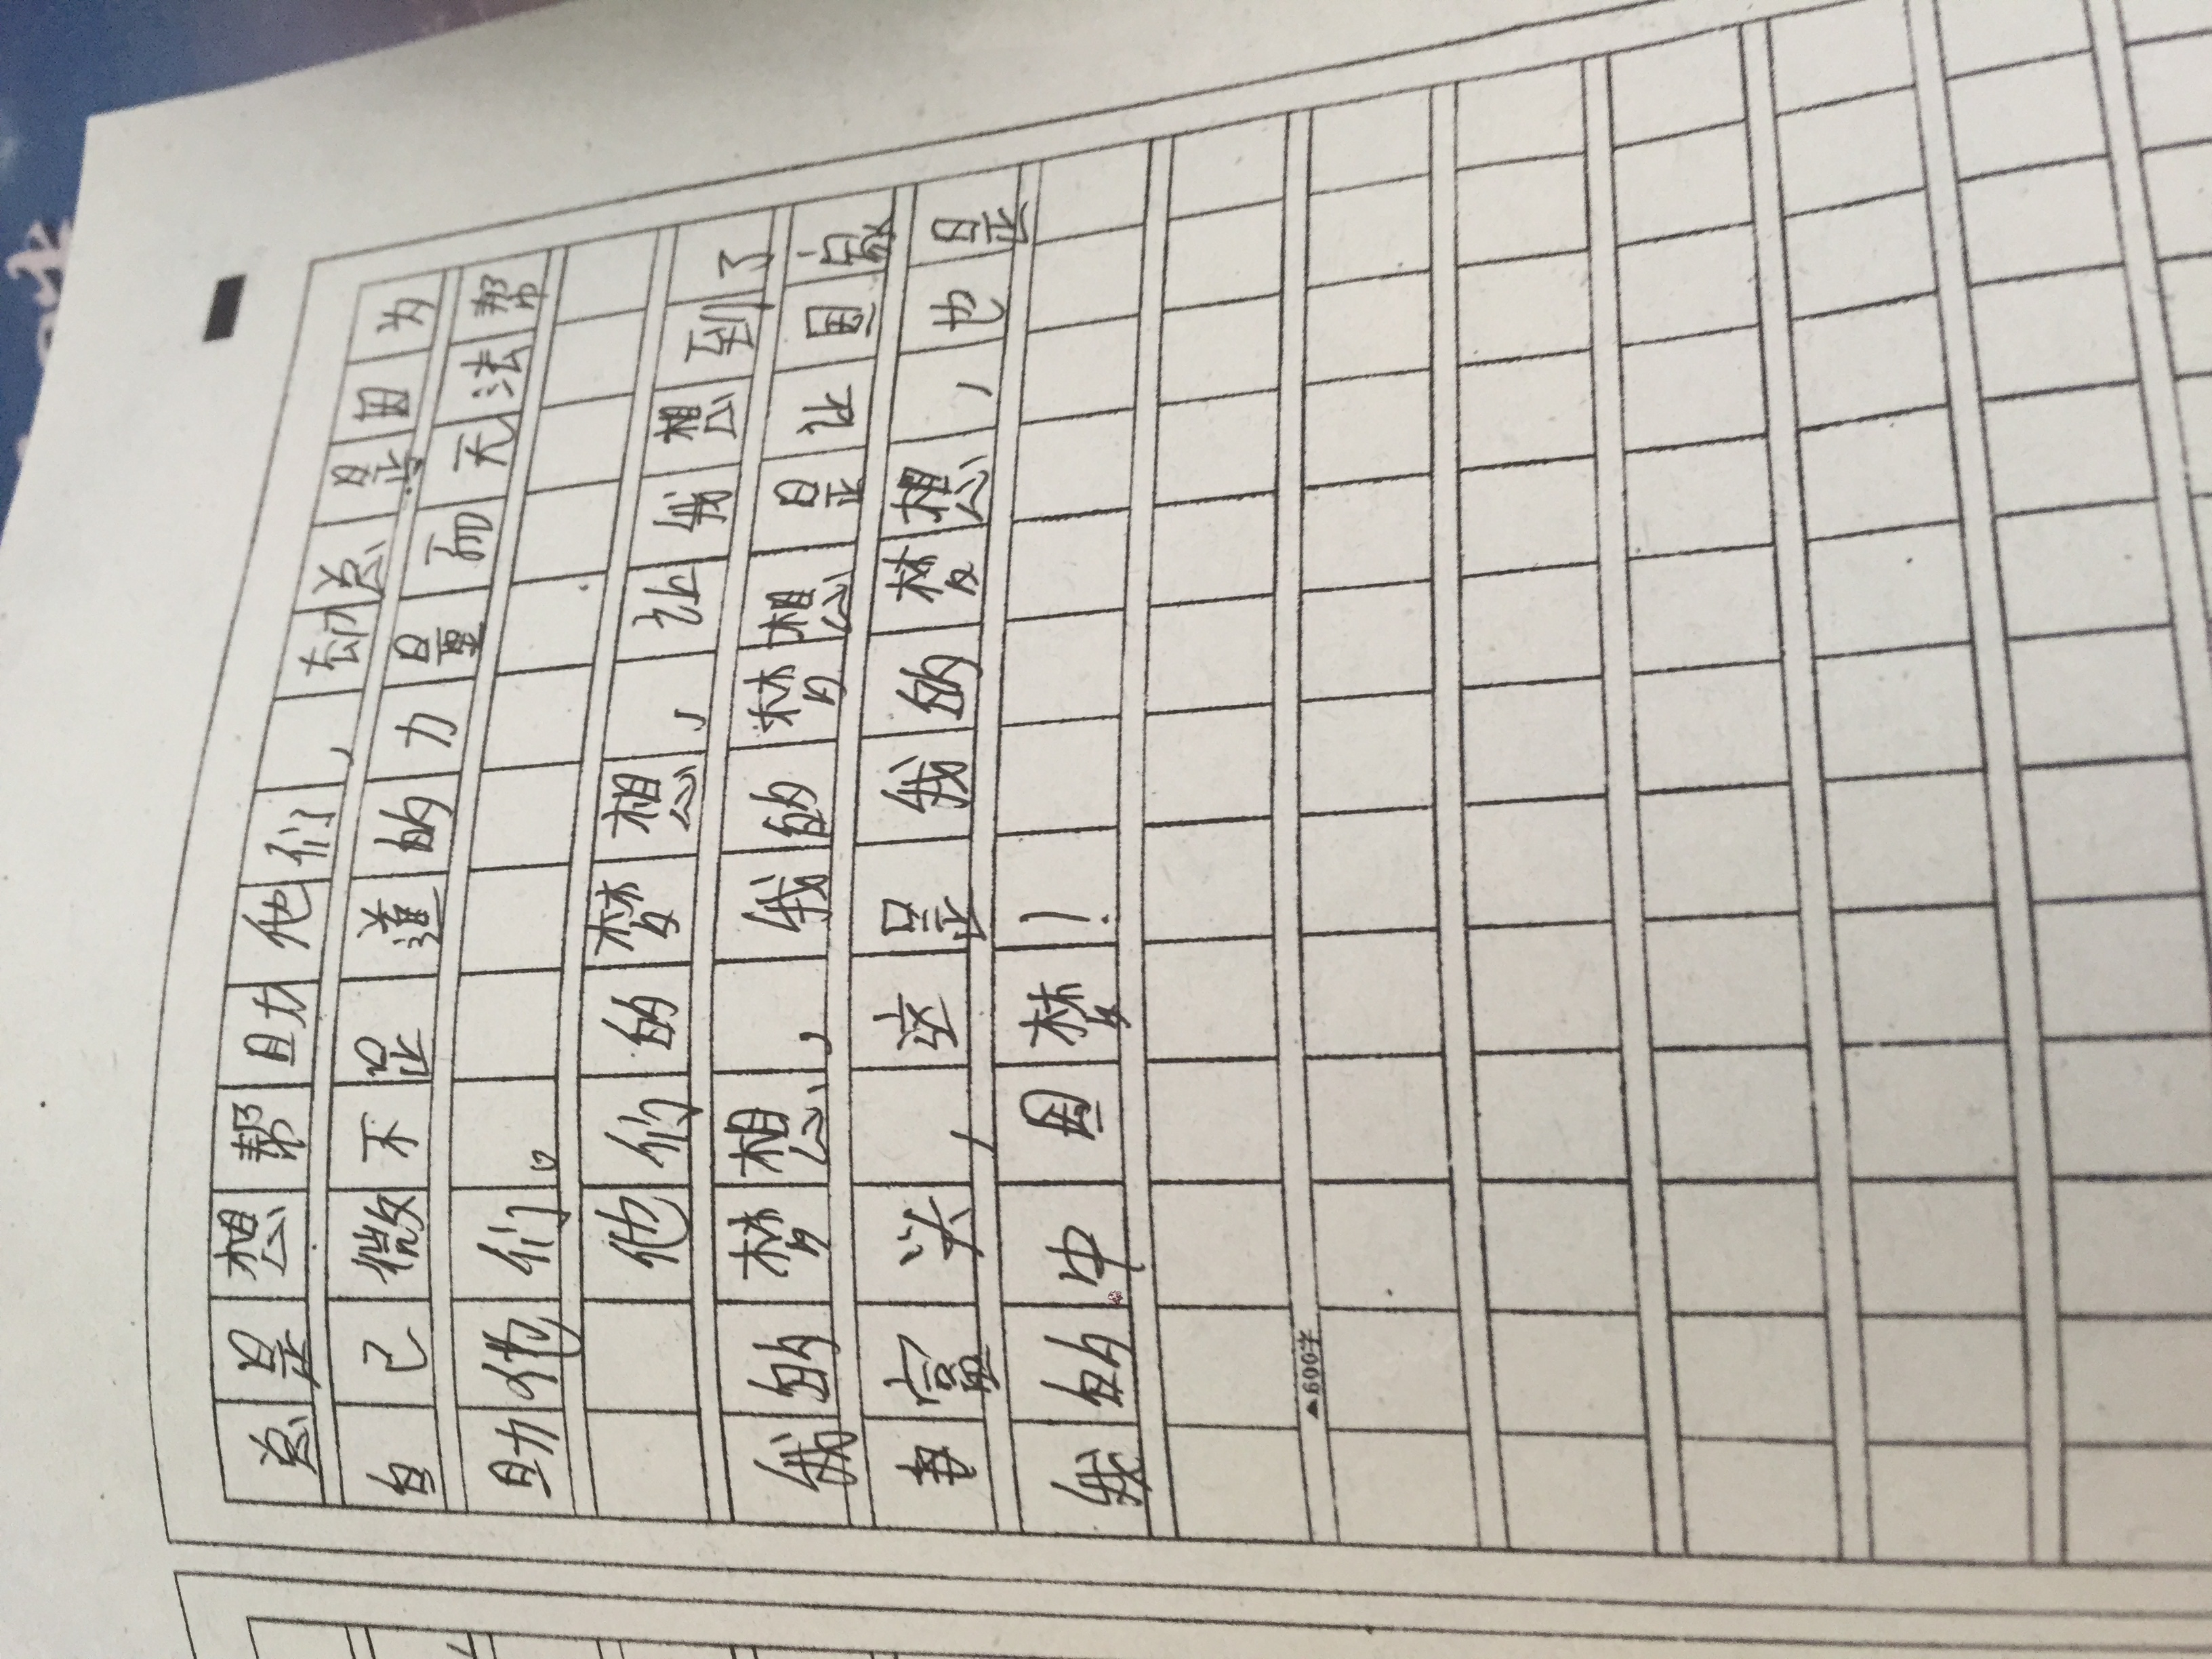 总是想帮助他们，却总是因为
自己微不足道的力量而无法帮
助他们。
他们的梦想，让我想到了
我的梦想，我的梦想是国
富，这是我的梦想，也是
我的中国梦！
▲600字